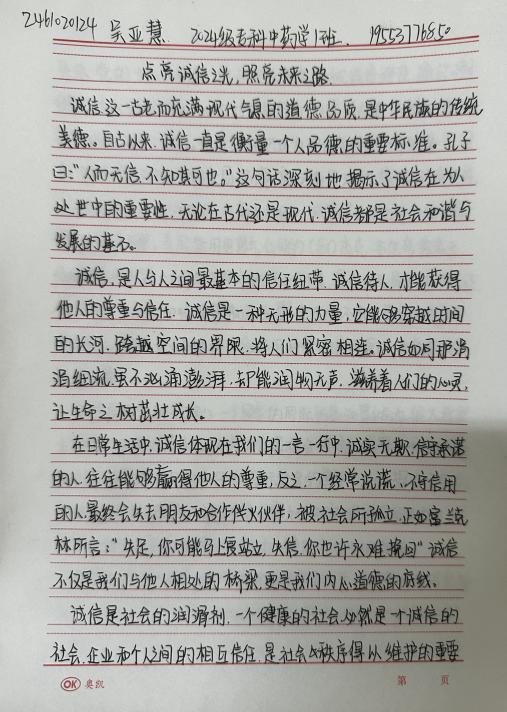 2461020124 吴亚慧. 2024级专科中药学1班. 19553776850
点亮诚信之光，照亮未来之路.
诚信，这一古老而充满现代气息的道德品质，是中华民族的传统
美德。自古以来，诚信一直是衡量一个人品德的重要标准。孔子
曰："人而无信，不知其可也。"这句话深刻地揭示了诚信在为人
处世中的重要性，无论在古代还是现代，诚信都是社会和谐与
发展的基石。
诚信，是人与人之间最基本的信任纽带，诚信待人，才能获得
他人的尊重与信任. 诚信是一种无形的力量，它能够穿越时间
的长河，跨越空间的界限，将人们紧密相连。诚信如同那涓
涓细流，虽不汹涌澎湃，却能润物无声，滋养着人们的心灵，
让生命之树茁壮成长。
在日常生活中，诚信体现在我们的一言一行中，诚实无欺，信守承诺
的人，往往能够赢得他人的尊重，反之，一个经常说谎，不守信用
的人最终会失去朋友和合作伙伴，被社会所孤立，正如富兰克
林所言："失足，你可能马上复站立，失信，你也许永难挽回"诚信
不仅是我们与他人相处的桥梁，更是我们内心道德的底线。
诚信是社会的润滑剂，一个健康的社会，必然是一个诚信的
社会，企业和个人之间的相互信任，是社会秩序得以维护的重要
OK 奥凯 第 页